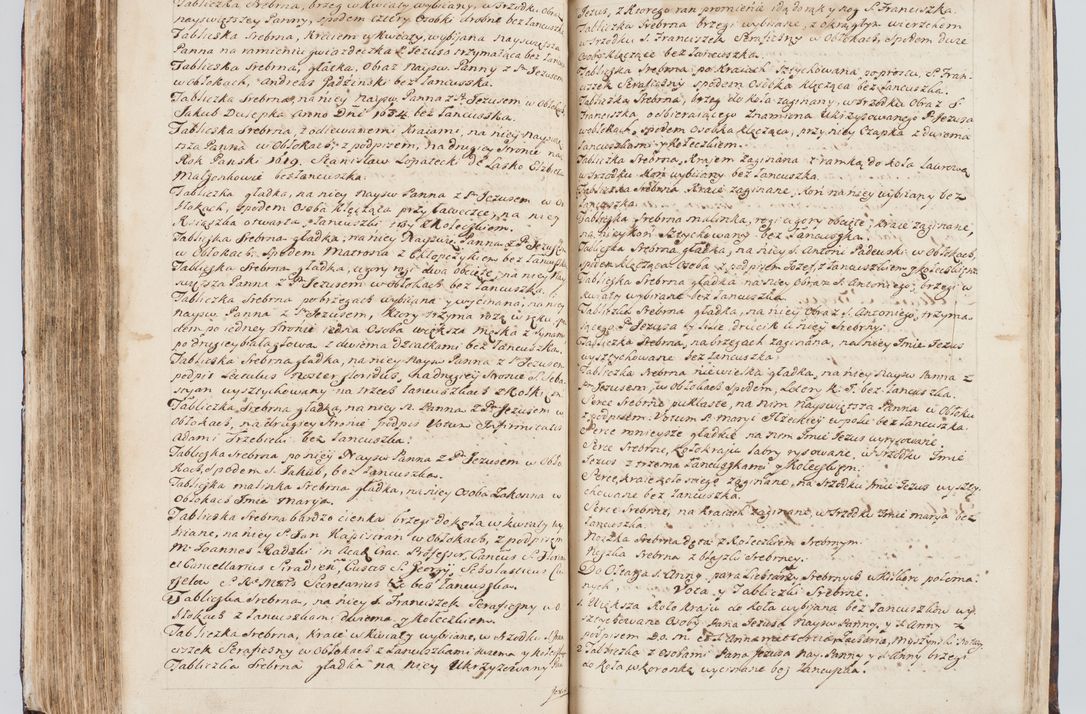 Tabliczka srebrna, brzeg w kwiaty wybiiany, w srzodku Obraz
nayswiętszey Panny, spodem cztery Osobki drobne bez łancuszka
Tabliczka srebrna, kraiem w kwiaty, wybijana nayswiętsza
Panna na ramieniu gwiazdeczka P. Jezusa trzymaiąca bez łancu
Tabliczka Srebrna, gładka, Obraz Naysw. Panny z P. Jezusem
w obłokach, Andreas Jadzinski bez łancuszka.
Tabliczka Srebrna, na niey Naysw. Panna z P. Jezusem w Obłokach
Jakub Dusepka Anno Dni 1634 bez łancuszka.
Tabliczka Srebrna, z odlewanemi kraiami, na niey Nayswięt
sza Panna w Obłokach, z podpisem, na drugiey stronie na
Rok Panski 1619. Stanisław Łopatecki de Lasko Elzbieta
Małzonkowie bez łancuszka.
Tabliczka gładka, na niey Naysw. Panna z P. Jezusem w Ob
łokach, spodem Osoba klęcząca przy ławeczce, na niey
Ksiąszka otwarta, łancuszki i by z koleczkiem.
Tabliczka Srebrna gładka, na niey Naysw. Panna z P. Jezusem
w Obłokach, Spodem Matrona z chłopczykiem bez łancuszka
Tabliczka Srebrna gładka, u gory rogi dwa obcięte, na niey Nay
swiętsza Panna z P. Jezusem w Obłokach bez łancuszka.
Tabliczka Srebrna po brzegach wybijana y wycinana, na niey
Naysw. Panna z P. Jezusem, ktory trzyma rozą w ręku, spo
dem po iedney stronie iedna Osoba większa męska z synam
po drugiey białagłowa z dwiema dziatkami bez łancuszka.
Tabliczka Srebrna gładka, na niey Naysw. Panna z P. Jezusem
podpis Lectulus Noster floridus, na drugiey stronie S. Seba
styan wysztychowany na trzech łancuszkach z kolkiem
Tabliczka Srebrna gładka, na niey N. Panna z P. Jezusem w
Obłokach, na drugiey stronie podpis Votum Infirmitatis
Adami Trzebicki bez łancuszka.
Tabliczka Srebrna po niey Naysw. Panna z P. Jezusem w Obło
kach, spodem S. Jakub, bez łancuszka.
Tabliczka malinka Srebrna gładka, na niey Osoba Zakonna w
Obłokach Jmie Marya.
Tabliczka Srebrna bardzo cienka brzegi do koła w kwiaty wy
biiane, na niey S. Jan Kapistran w Obłokach, z podpisem
M. Joannes Radzki in Acad. Crac. Professor, Canon. S. Flor.
et Cancellarius Siradien. Custos S. Georgij Scholasticus
S. R. Mttis Secretarius &c bez łancuszka.
Tabliczka Srebrna, na niey S. Franciszek Seraficzny w O
błokach z łancuszkami dwiema y kołeczkiem.
Tabliczka Srebrna, kraie w kwiaty wybiiane, w srzodku S. Fran
ciszek Seraficzny w Obłokach z łancuszkami dwiema y kołeczkiem
Tabliczka Srebrna gładka na niey Ukrzyzowany Pan
Jezus
Jezus, z ktorego ran promienie idą do rąk y nog S. Franciszka.
Tabliczka Srebrna brzegi wybiiane, z okrągłym wierzchem
w srzodku S. Franciszek Seraficzny w Obłokach, spodem dwie
Osoby klęczące bez łancuszka.
Tabliczka Srebrna po kraiach sztychowana poprostu, S. Fran
ciszek Seraficzny spodem Osobka klęcząca bez łancuszka.
Tabliczka Srebrna, brzeg do koła zaginany, w srzodku Obraz S.
Franciszka, odbieraiącego Znamiona Ukrzyzowanego P. Jezusa
w obłokach, spodem Osobka klęcząca, przy niey Czapka z dwiema
łancuszkami y kołeczkiem.
Tabliczka Srebrna, kraiem zaginana z ramką do koła laurową
w srzodku kon wybijany bez łancuszka.
Tabliczka Srebrna kraie zaginane, kon na niey wybijany bez
łancuszka.
Tabliczka Srebrna malinka, rogi u gory obcięte, kraie zaginane,
na niey kon sztychowany bez łancuszka.
Tabliczka Srebrna gładka, na niey S. Antoni Padewski w obłokach,
spodem klęcząca Osoba z podpisem Jozef, z łancuszkiem y kołeczkiem
Tabliczka Srebrna gładka na niey Obraz S. Antoniego, brzegi w
kwiaty wybiiane bez łancuszka.
Tabliczka Srebrna gładka, na niey Obraz S. Antoniego, trzyma
iącego P. Jezusa y Lilie, drucik u niey Srebrny.
Tabliczka Srebrna, na brzegach zaginana, na niey Jmie Jezus
wysztychowane bez łancuszka.
Tabliczka Srebrna niewielka gładka, na niey Naysw. Panna z
P. Jezusem, w Obłokach, spodem, Litery K. P. bez łancuszka.
Serce Srebrne pukłaste, na nim Nayswiętsza Panna w Obłoku
z podpisem: Votum S. Maryi Ilzeckiey w polu bez łancuszka.
Serce mnieysze gładkie na nim Jmie Jezus wyrysowane.
Serce srebrne, koło kraju labry rysowane, w srzodku Jmie
Jezus z trzema łancuszkami y kołeczkiem.
Serce, kraie koło niego zaginane, na srzodku Jmie Jezus wyszty
chowane bez łancuszka.
Serce Srebrne, na kraiach zaginane, w srzodku Jmie Marya bez
łancuszka.
Nozka Srebrna dęta z kołeczkiem Srebrnym.
Nozka Srebrna z blaszki Srebrney.
Do Ołtarza S. Anny para Lichtarzy Srebrnych
nych, Vota y Tabliczki Srebrne.
1. Większa koło kraju do koła wybijana bez łancuszkow wy
sztychowane Osoby Pana Jezusa Naysw. Panny, y S. Anny z
podpisem D. O. M. et S. Anna
2. Tabliczka z Osobami Pana Jezusa Nay. Panny y S. Anny brzegi
do koła w koronkę wycinane bez łancuszka.